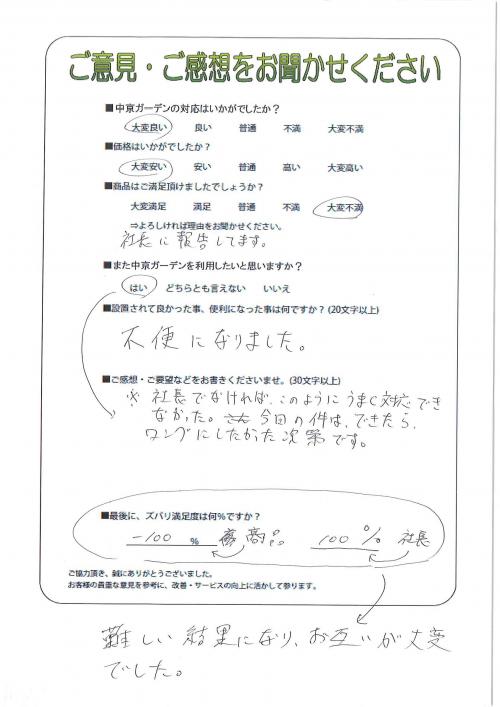 ご意見・ご感想をお聞かせください
■中京ガーデンの対応はいかがでしたか？
大変良い 良い 普通 不満 大変不満
■価格はいかがでしたか？
大変安い 安い 普通 高い 大変高い
■商品はご満足頂けましたでしょうか？
大変満足 満足 普通 不満 大変不満
⇒よろしければ理由をお聞かせください。
社長に報告してます。
■また中京ガーデンを利用したいと思いますか？
はい どちらとも言えない いいえ
■設置されて良かった事、便利になった事は何ですか？(20文字以上)
不便になりました。
■ご感想・ご要望などをお書きくださいませ。(30文字以上)
※ 社長でなければ、このようにうまく対応でき
なかった。 今回の件は、できたら、
ロングにしたかった次第です。
■最後に、ズバリ満足度は何%ですか？
-100 % 商品 100 % 社長
ご協力頂き、誠にありがとうございました。
お客様の貴重な意見を参考に、改善・サービスの向上に活かして参ります。
難しい結果になり、お互いが大変
でした。